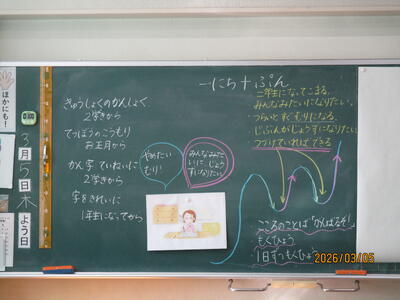 一にち十ぷん
きゅうしょくのかんしょく
2学きから
てつぼうのこうもり
お正月から
かん字ていねいに
2学きから
字をきれいに
1年生になってから
やめたい
むり!
みんなみた
いに、じょう
ずになりたい
二年生になってこまる。
みんなみたいになりたい。
つらいとすぐむりになる。
じぶんがじょうずになりたい。
つづけていればできる
こころのことば「がんばるぞ!」
もくひょう
1日ずつもくひょう
ほかにも!
3月5日木よう日
2026/03/05